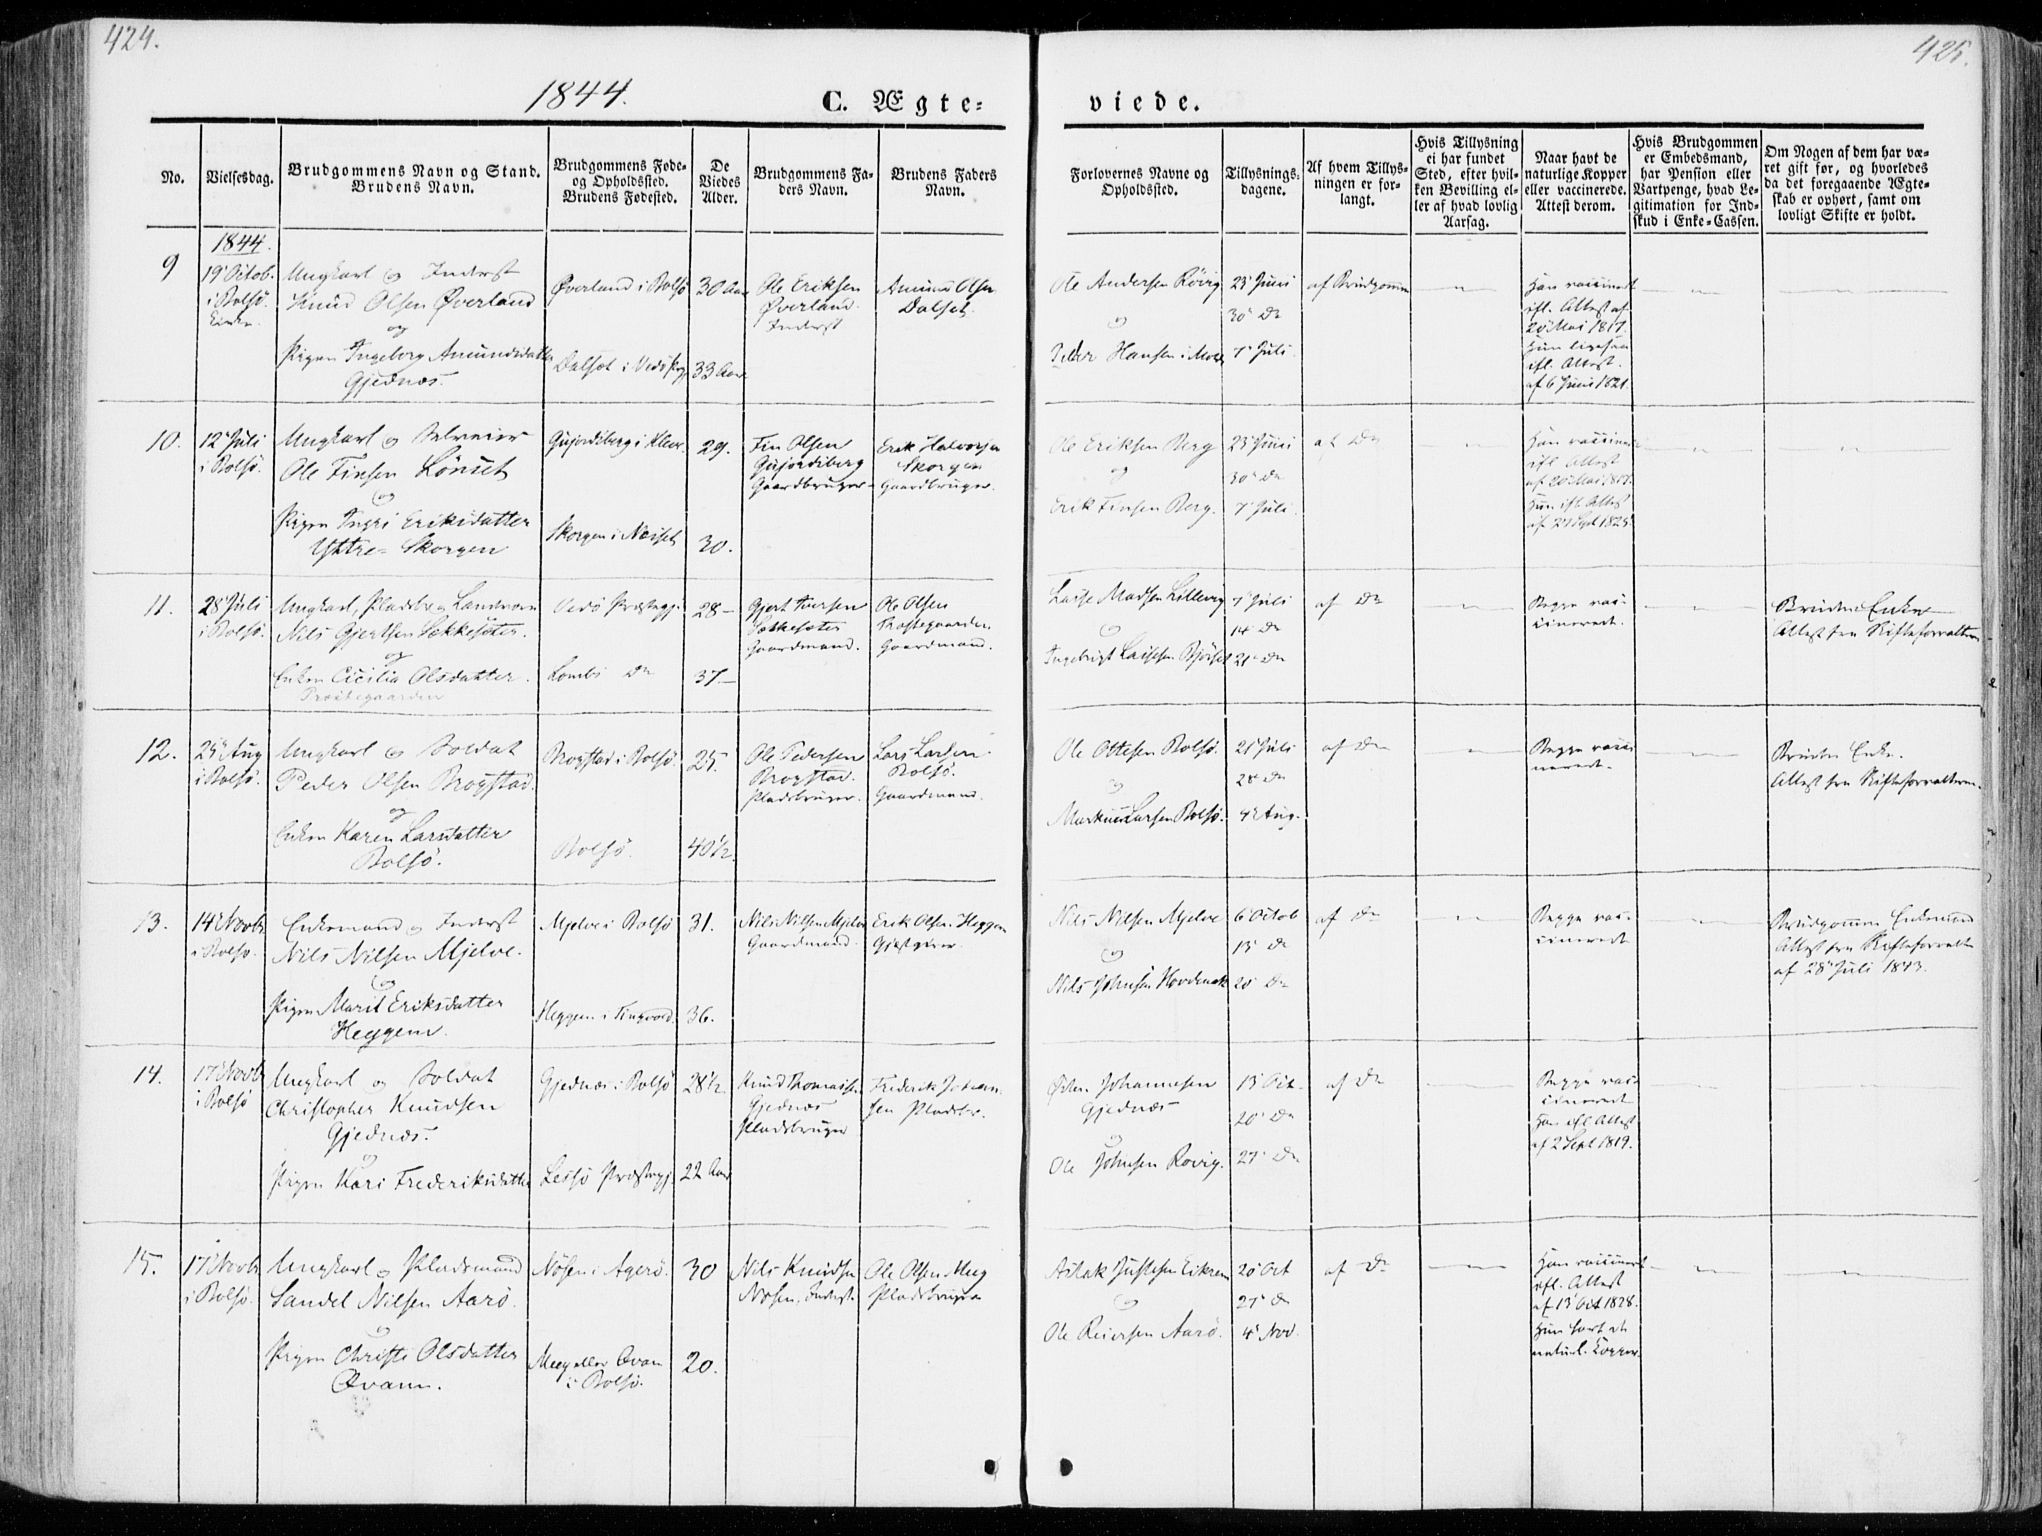 424.
425.
1844.
C. Ægte-
viede.
No.
Vielsesdag.
Brudgommens Navn og Stand.
Brudens Navn.
Brudgommens Føde-
og Opholdssted.
Brudens Fødested.
De
Viedes
Alder.
Brudgommens Fa-
ders Navn.
Brudens Faders
Navn.
Forlovernes Navne og
Opholdssted.
Tillysnings-
dagene.
Af hvem Tillys-
ningen er for-
langt.
Hvis Tillysning
ei har fundet
Sted, efter hvil-
ken Bevilling el-
ler af hvad lovlig
Aarsag.
Naar havt de
naturlige Kopper
eller vaccinerede.
Attest derom.
Hvis Brudgommen
er Embedsmand,
har Pension eller
Vartpenge, hvad Le-
gitimation for Ind-
skud i Enke-Cassen.
Om Nogen af dem har væ-
ret gift før, og hvorledes
da det foregaaende Ægte-
skab er ophørt, samt om
lovligt Skifte er holdt.
1844.
9
19 Octob.
i Bolsö
Kirke.
Ungkarl og Inderst
Knud Olsen Øverland
og
Pigen Ingeborg Amundsdatter
Gjednæs.
Øverland i Bolsö
Dalset i Vedö
30 Aar
33 Aar
Ole Eriksen
Øverland
Inderst
Amund Olsen
Dalset.
Ole Andersen Rövig
og
Peder Hansen i Molde
23 Juni
30 Do
7 Juli.
af Brudgommen
Han vaccineret
ifl. Attest af
20 Mai 1817.
Hun ligesaa
ifl. Attest
af 6 Juni 1821.
10.
12 Juli
i Bolsö.
Ungkarl og Selveier
Ole Finsen Lönset
og
Pigen Ingri Eriksdatter
Yttre-Skorgen
Gujordsberg i Kleve.
Skorgen i Næsset
29.
30.
Fin Olsen
Gujordsberg
Gaardbruger
Erik Halvorsen
Skorgen
Gaardbruger.
Ole Eriksen Berg
og
Erik Finsen Berg.
23 Juni
30 Do
7 Juli.
af Do
Han vaccineret
ifl. Attest
af 20 Mai 1817.
Hun ifl. Attest
af 27 Sept 1825.
11.
28 Juli
i Bolsö.
Ungkarl, Pladsbr. og Landværn
Nils Gjertsen Sækkesæter.
og
Enken Cicilia Olsdatter.
Præstegaarden
Vedö Præstegj.
Lombs Do
28
37
Gjert Iversen
Sækkesæter
Gaardmand.
Ole Olsen
Præstegaarden
Gaardmand.
Lasse Madsen
og
Ingebrigt Lassesen Björset
7 Juli
14 Do
21 Do
af Do
Begge vac-
cinerede.
Bruden Enke
Attest fra Skifteforvalteren
12.
25 Aug
i Bolsö.
Ungkarl og Soldat
Peder Olsen Brogstad.
og
Enken Karen Larsdatter
Bolsö.
Brogstad i Bolsö
Bolsö.
25.
40½.
Ole Pedersen
Brogstad.
Pladsbruger.
Lars Larsen
Bolsö.
Gaardmand.
Ole Ottesen Bolsö.
og
Markus Larsen Bolsö.
21 Juli
28 Do
4 Aug.
af Do
Begge vacci
nerede.
Bruden Enke.
Attest fra Skifteforvalteren.
13.
14 Novbr
i Bolsö.
Enkemand og Inderst
Nils Nilsen Mjelve.
og
Pigen Marit Eriksdatter
Heggem.
Mjelve i Bolsö
Heggem i Tingvold.
31.
36.
Nils Nilsen Mjelve
Gaardmand.
Erik Olsen Heggem
Gjestgiver.
Nils Nilsen Mjelve
og
Nils Johnsen Hovdenak
6 Octob
13 Do
20 Do
af Do
Begge vac-
cinerede
Brudgommen Enkemand
Attest fra Skifteforvalte
af 28 Juli 1843.
14.
17 Novbr
i Bolsö
Ungkarl og Soldat
Christopher Knudsen
Gjednæs.
og
Pigen Kari Frederiksdatter
Gjednæs i Bolsö
Lessö Præstegj.
28½.
22 Aar
Knud Thomassen
Gjednæs
Pladsbruger
Frederik Johan-
sen Pladsbr.
Østen Johannesen
Gjednæs
og
Ole Johnsen Rövig.
13 Oct.
20 Do
27 Do
af Do
Begge vac-
cinerede
Han ifl. Attest
af 2 Sept 1819.
15.
17 Novbr
i Bolsö.
Ungkarl og Pladsmand
Sandel Nilsen Aarö.
og
Pigen Christi Olsdatter
Øvam.
Nösen i Agerö.
Meeg eller Øvam
i Bolsö.
30
20.
Nils Knudsen
Nösen, Inderst.
Ole Olsen Meeg
Pladsbruger
Aslak Justesen Eikrem
og
Ole Reiersen Aarö.
20 Oct
27 Do
4 Nov.
af Do
Han vaccineret
ifl. Attest
af 13 Oct 1828.
Hun havt de
naturl. Kopper.